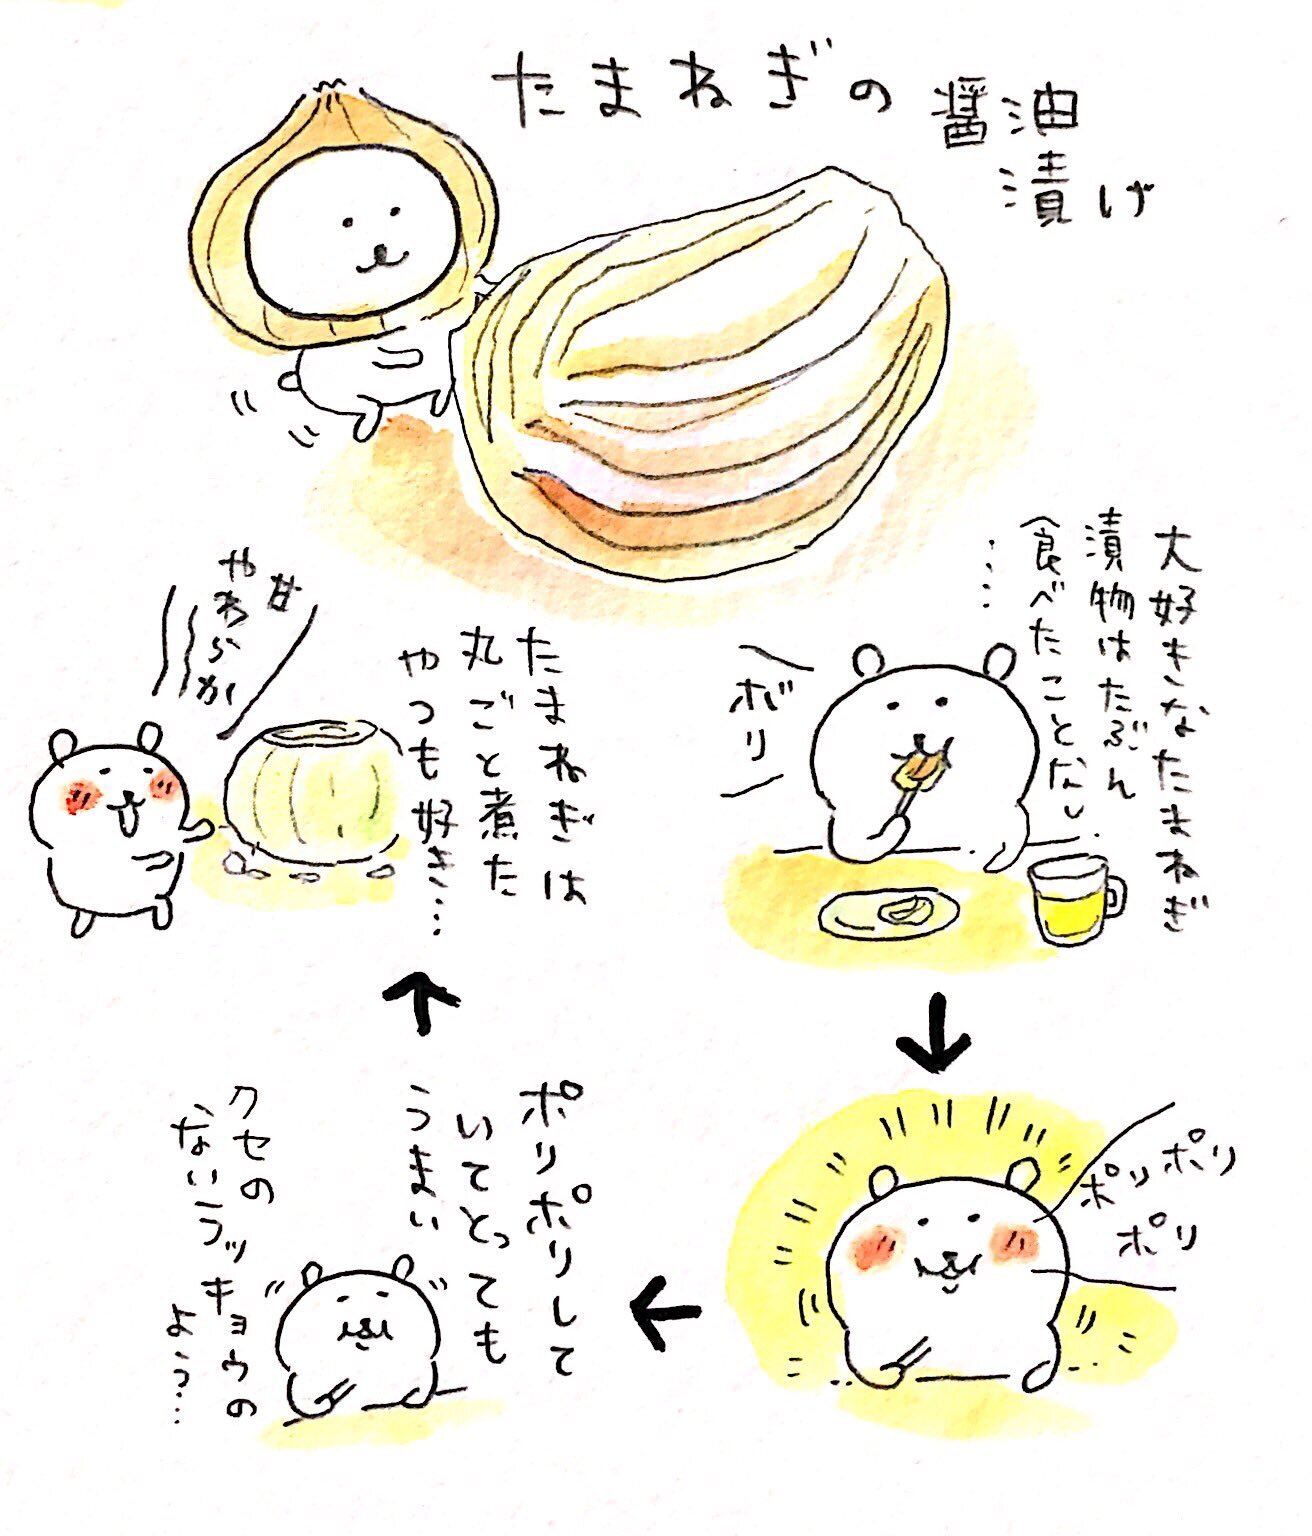 たまねぎの
醤油
漬け
大好きなたまねぎ
漬物はたぶん
食べたことなし
……
ポリ
ポリポリ
ポリ
ポリポリして
いてとっても
うまい
クセの
ないラッキョウの
よう…
たまねぎは
丸ごと煮た
やつも好き…
甘
やわらか